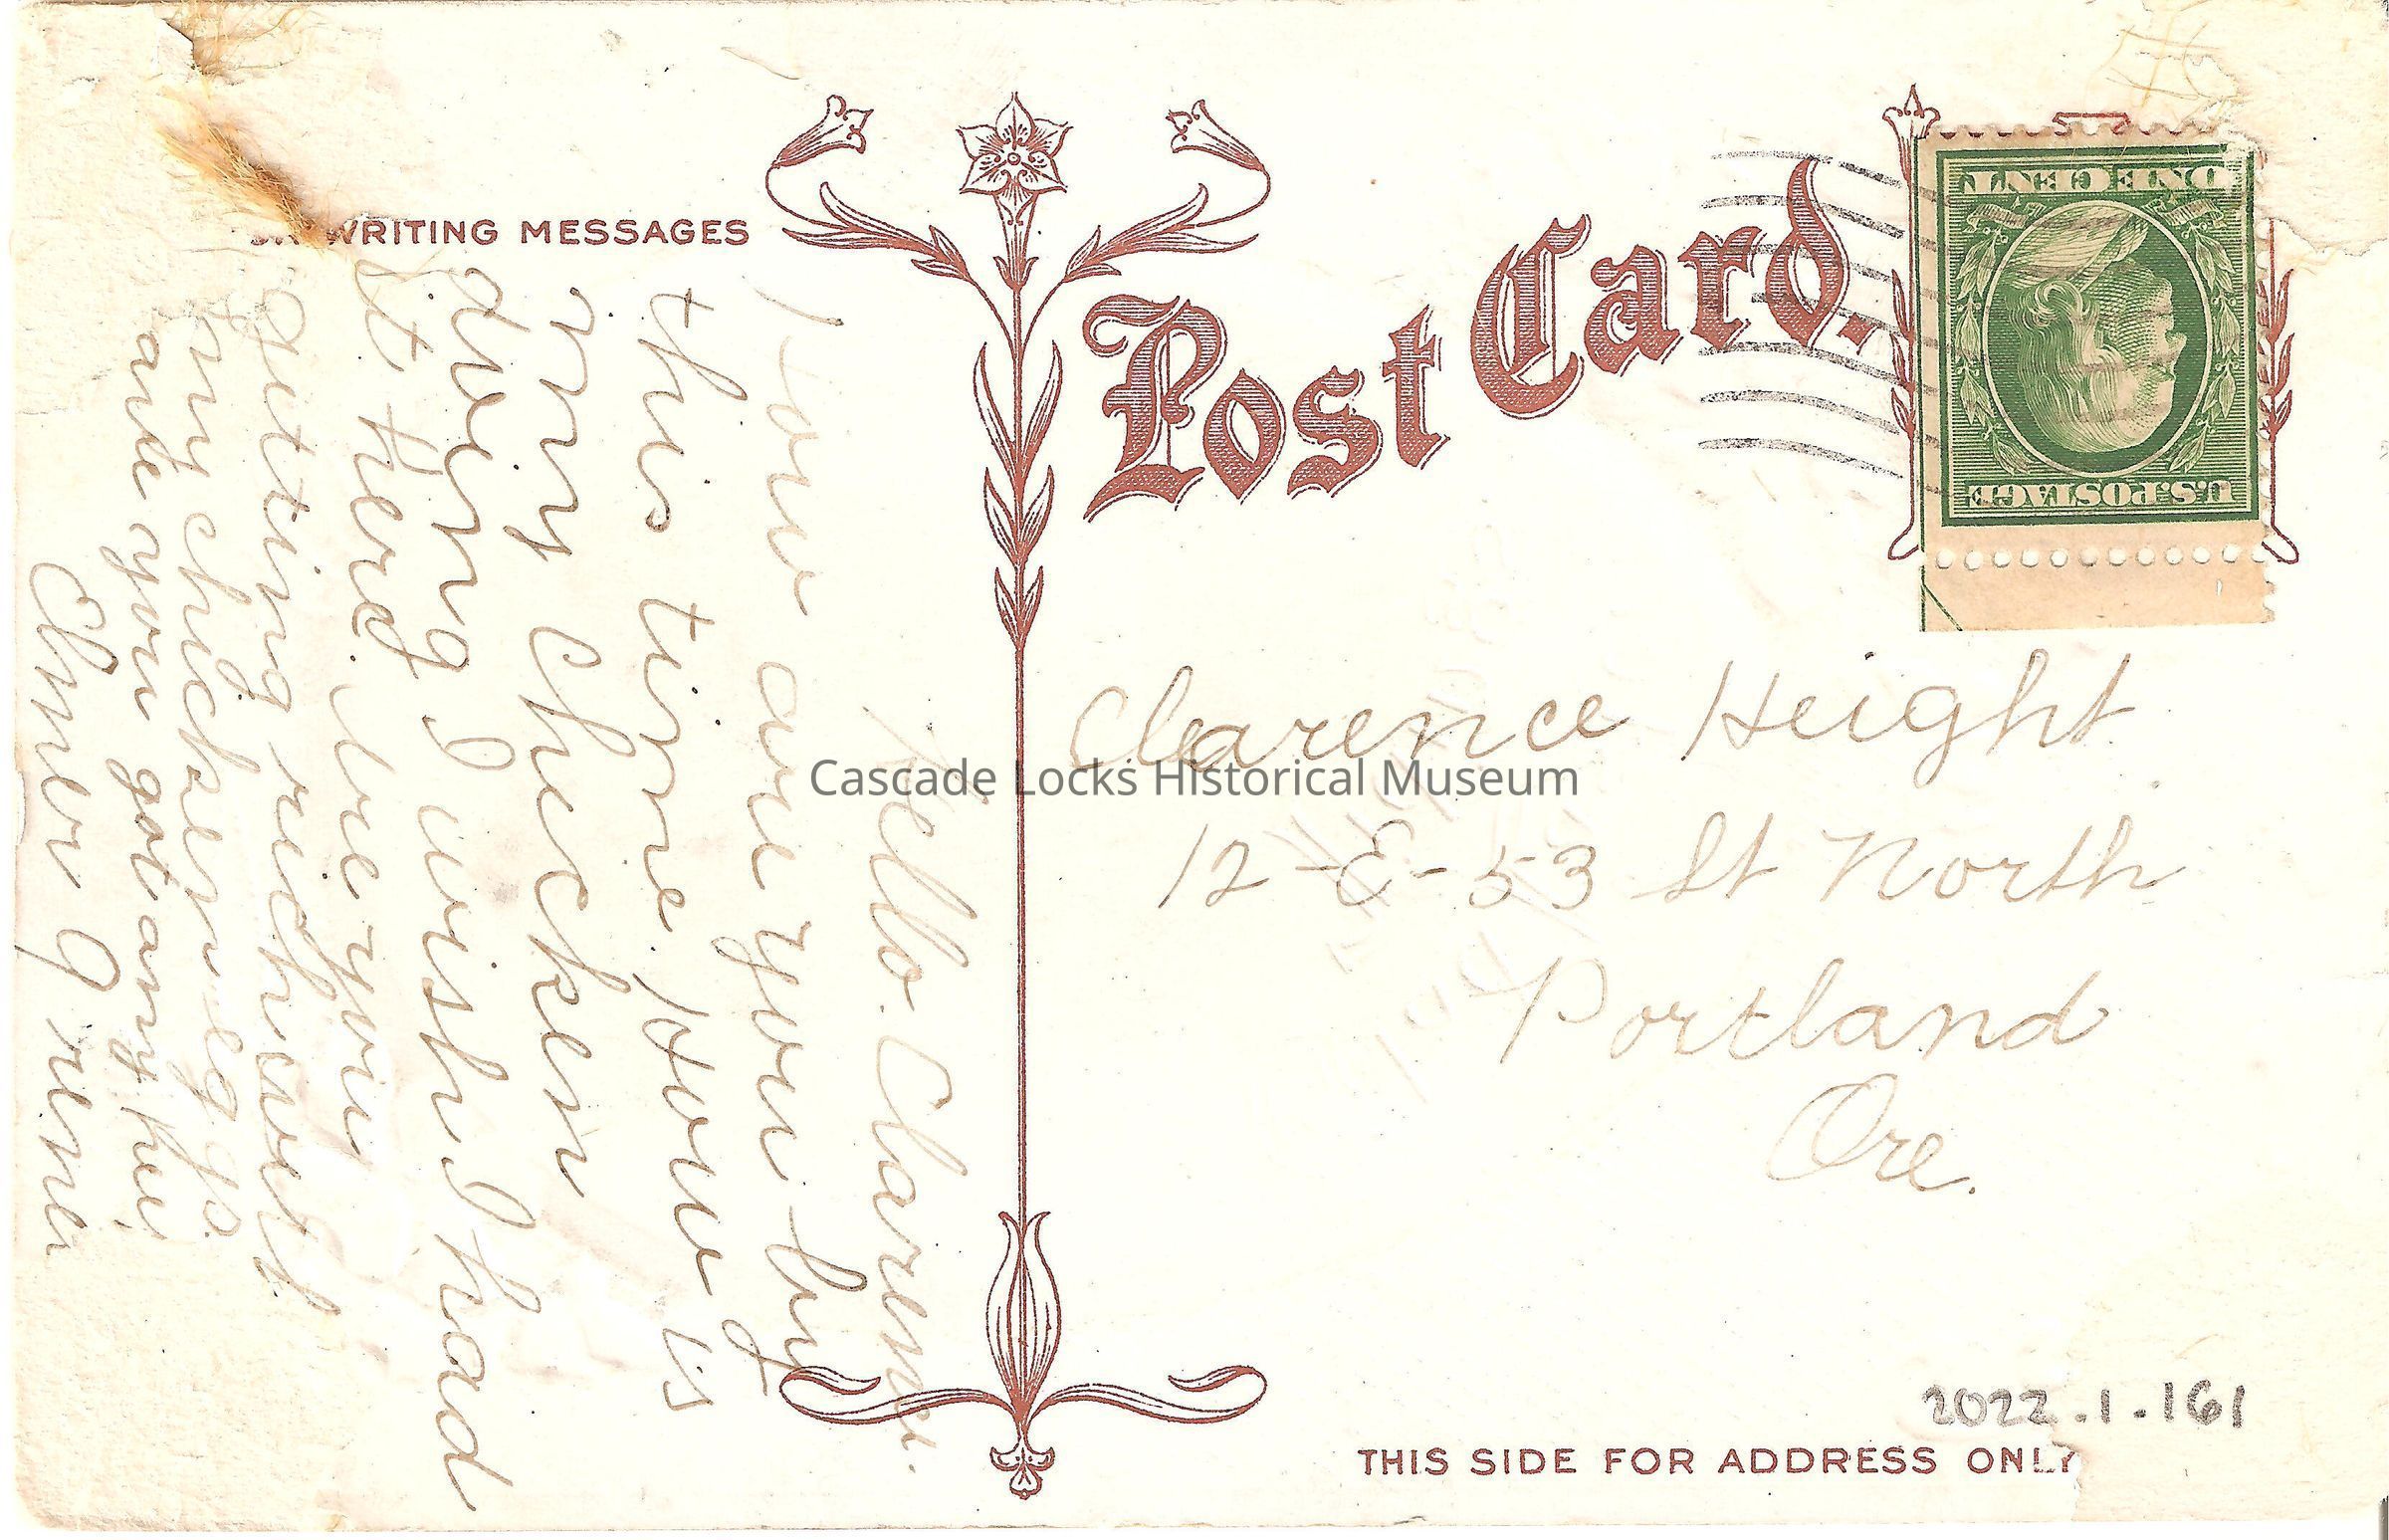 WRITING MESSAGES
Post Card.
ONE CENT
U.S. POSTAGE
Hello. Clarence.
How are you by
this time. How is
my checken
doing I wish I had
it are you
getting rich with
my chickens eggs.
are you got any
Elmer
Clarence Height
12-E-53 St North
Portland
Ore.
Cascade Locks Historical Museum
2022.1.161
THIS SIDE FOR ADDRESS ONLY